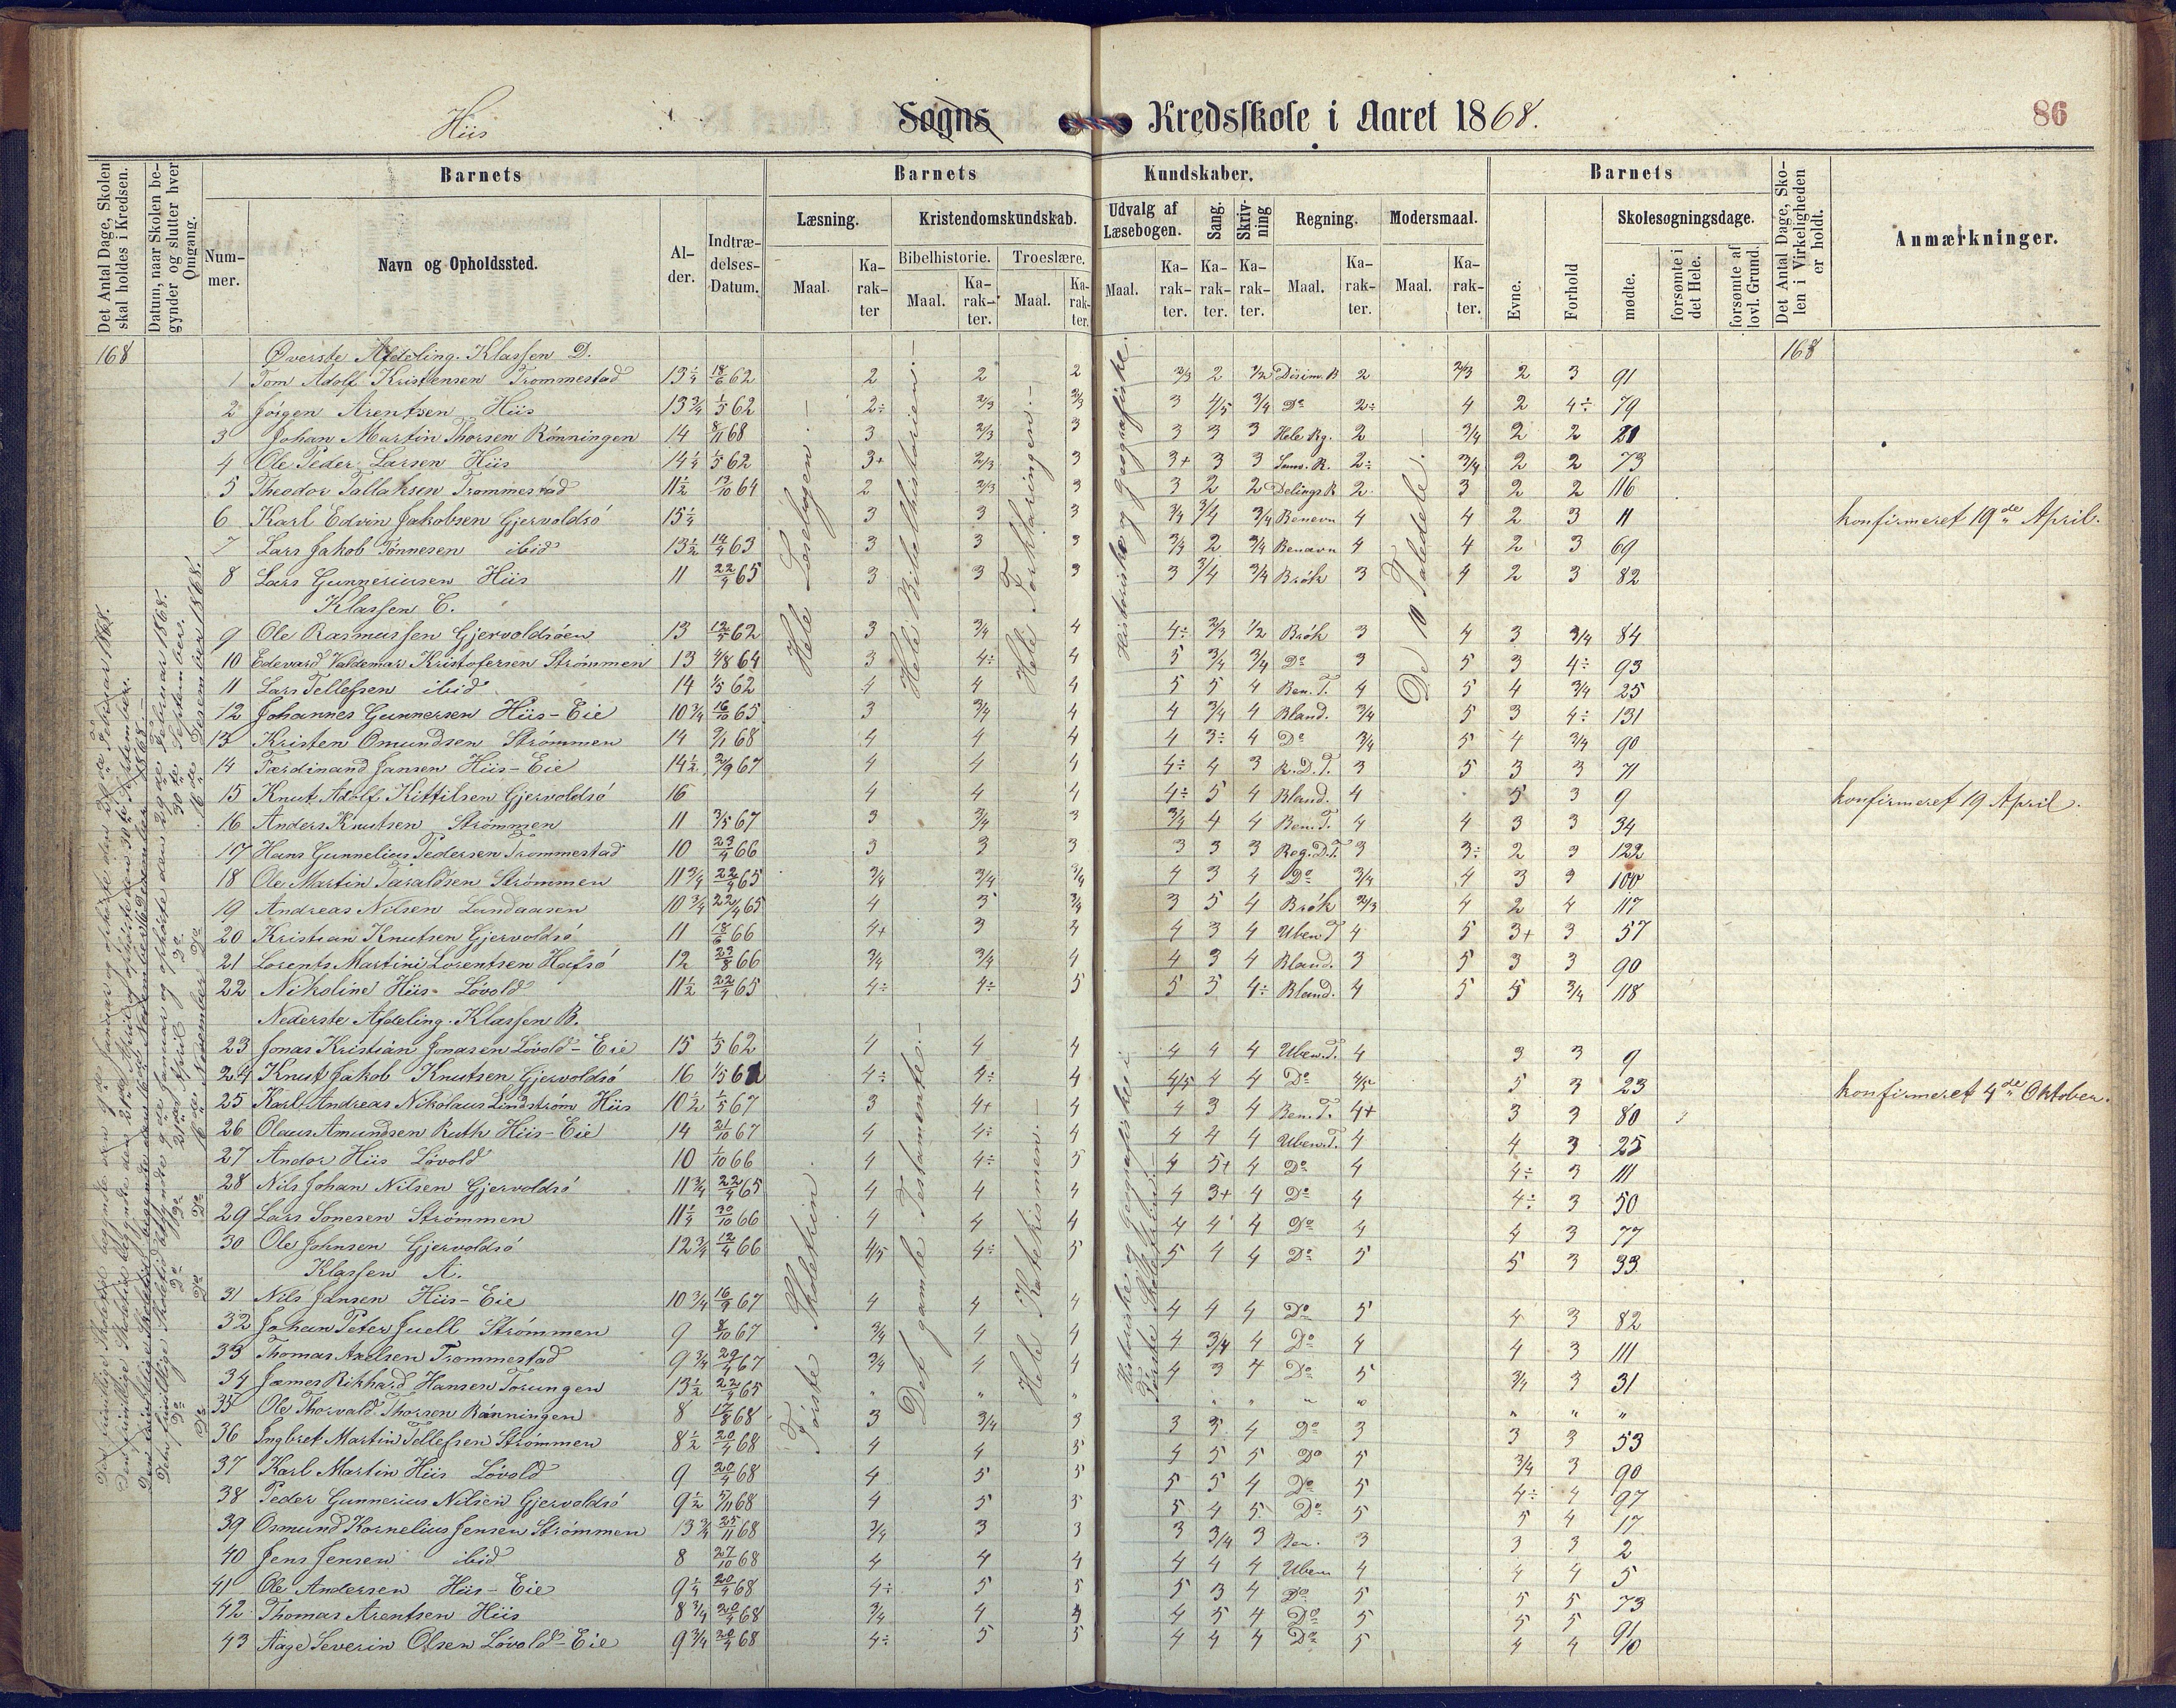 Hiis Sogns Kredsskole i Aaret 1868.
86
Det Antal Dage, Skolen skal holdes i Kredsen.
Datum, naar Skolen begynder og slutter hver Omgang.
Barnets
Nummer.
Navn og Opholdssted.
Alder.
Indtrædelses-Datum.
Barnets Kundskaber.
Læsning.
Maal.
Karakter
Kristendomskundskab.
Bibelhistorie.
Maal.
Karakter.
Troeslære.
Maal.
Karakter.
Udvalg af Læsebogen.
Maal.
Karakter.
Sang.
Karakter.
Skrivning
Karakter.
Regning.
Maal.
Karakter.
Modersmaal.
Maal.
Karakter.
Barnets
Evne.
Forhold
Skolesøgningsdage.
mødte.
forsømte i det Hele.
forsømte af lovl. Grund.
Det Antal Dage, Skolen i Virkeligheden er holdt.
Anmærkninger.
168 Øverste Afdeling. Klassen D. 168
1 Tom Adolf Kristensen Trommestad 13¼ 18/6 62 2 2 2 2/3 2 ½ 2 2/3 2 3 91
2 Jørgen Arentsen Hiis 13¾ 1/5 62 2÷ 2/3 2/3 3 4/5 3/4 Do 2÷ 4 2 4÷ 79
3 Johan Martin Thorsen Rønningen 14 8/11 68 3 2/3 3 3 3 3 Hele Rg. 2 3/4 2 2 21
4 Ole Peder Larsen Hiis 14¼ 1/5 62 3+ 2/3 3 3+ 3 3 2÷ 3/4 2 2 73
5 Theodor Tallaksen Trommestad 11½ 64 2 2/3 3 3 2 2 Delings R 2 3 2 2 116
6 Karl Edvin Jakobsen Gjervoldsø 15¼ 3 3 3 3/4 3/4 3/4 Benevn 4 4 2 3 11 konfirmeret 19de April.
7 Lars Jakob Tønnesen ibid 13½ 14/9 63 3 3 3 3/4 2 3/4 Benævn 4 4 2 3 69
8 Lars Gunneriusen Hiis 11 22/4 65 3 3 3 3 3/4 3/4 Brøk 3 4 2 3 82
Klassen C.
9 Ole Rasmussen Gjervoldsøen 13 62 3 3/4 4 4÷ 2/3 1/2 Brøk 3 4 3 3/4 84
10 Edevard Valdemar Kristofersen Strømmen 13 4/8 64 3 4÷ 4 5 3/4 3/4 Do 3 5 3 4÷ 93
11 Lars Tellefsen ibid 14 1/5 62 4 4 4 5 5 4 Ben. T. 4 5 4 3/4 25
12 Johannes Gunnersen Hiis-Eie 10¾ 16/10 65 3 3/4 4 4 3/4 4 Bland. 3/4 5 3 4÷ 131
13 Kristen Omundsen Strømmen 14 68 4 4 4 4 3÷ 4 Do 3/4 5 4 3/4 90
14 Færdinand Jansen Hiis-Eie 14½ 2/9 67 4 4 4 4÷ 4 3 R.D.T. 3 5 3 3 71
15 Knut Adolf Kittilsen Gjervoldsø 16 4 4 4 4÷ 5 4 Bland. 4 5 3 9 konfirmeret 19 April.
16 Anders Knutsen Strømmen 11 3/5 67 3 3/4 3 3/4 4 4 Ben. T. 4 4 3 3 34
17 Hans Gunnelius Pedersen Trommestad 10 23/4 66 3 3 3 3 3 3 Reg. D.T. 3 3÷ 2 3 122
18 Ole Martin Taraldsen Strømmen 11¾ 22/4 65 3/4 3/4 3/4 4 3 4 Do 3/4 4 3 3 100
19 Andreas Nilsen Lundaasen 10¾ 22/4 65 4 3 3/4 3 5 4 Brøk 2/3 4 2 4 117
20 Kristian Knutsen Gjervoldsø 11 18/6 66 4+ 3 4 4 3 4 Uben T 4 5 3+ 3 57
21 Lorents Martini Lorentsen Hafsø 12 23/8 66 3/4 3/4 4 4 3 4 Bland. 3 5 3 3 90
22 Nikoline Hiis-Løvold 11½ 22/4 65 4÷ 4÷ 5 5 5 4÷ Bland. 4 5 5 3/4 118
Nederste Afdeling. Klassen B.
23 Jonas Kristian Jonasen Løvold-Eie 15 1/5 62 4 4 4 4 4 4 Uben. T. 4 3 3 9
24 Knut Jakob Knutsen Gjervoldsø 16 1/5 62 4÷ 4÷ 4 4/5 4 4 Do 4/5 5 3 23 konfirmeret 4de Oktober.
25 Karl Andreas Nikolaus Lindstrøm Hiis 10½ 1/5 67 3 4+ 4 4 3 4 Ben. T. 4+ 3 3 80
26 Olaus Amundsen Ruth Hiis-Eie 14 21/10 67 4 4÷ 4 4 4 4 Uben. T. 4 4 3 25
27 Andor Hiis Løvold 10 1/10 66 4 4÷ 5 4 5+ 4 Do 4 4÷ 3 111
28 Nils Johan Nilsen Gjervoldsø 11¾ 22/4 65 4 4 4 4 3+ 4 Do 4 4÷ 3 50
29 Lars Sonesen Strømmen 11¼ 30/10 66 4 4 4 4 4 4 Do 4 4 3 77
30 Ole Johnsen Gjervoldsø 12¾ 12/4 66 4/5 4÷ 5 5 4 4 Do 5 5 3 33
Klassen A.
31 Nils Jansen Hiis-Eie 10¾ 16/9 67 4 4 4 4 4 4 Do 5 4 3 82
32 Johan Peter Juell Strømmen 9 8/10 67 3/4 4 4 4 3/4 4 Do 4 4 3 111
33 Thomas Axelsen Trommestad 9¾ 29/4 67 3/4 4 4 4 3 4 Do 5 3/4 3 31
34 James Rikhard Hansen Torungen 13½ 22/4 65 " " " " " " " " " " "
35 Ole Thorvald Thorsen Rønningen 8 17/8 68 3 3/4 3 3 3 4 Do 3 3 3 53
36 Ingbret Martin Tellefsen Strømmen 8½ 20/4 68 4 4 5 4 5 5 Do 5 3/4 3 90
37 Karl Martin Hiis Løvold 9 20/4 68 4 5 5 5 5 4 Do 5 4÷ 4 97
38 Peder Gunnerius Nilsen Gjervoldsø 9½ 5/11 68 4 5 5 5 4 5 Do 5 5 4 17
39 Osmund Kornelius Jensen Strømmen 13¾ 25/11 68 3/4 3 3 3 3/4 3 Ben. 3 3 3 2
40 Jens Jensen ibid 8 27/10 68 4 4 4 4 4 4 Uben 4 4 4 5
41 Ole Andersen Hiis-Eie 9¼ 20/4 68 4÷ 5 5 5 3 4 Do 5 5 5 73
42 Thomas Arentsen Hiis 8¾ 20/4 68 3/4 4 4 4 5 4 Do 5 5 5 91
43 Aage Severin Olsen Løvold-Eie 9¾ 20/4 68 4÷ 5 5 4 4 4 Do 5 4 4 10
Hele Læsebogen.
Hele Bibelhistorien.
Hele Forklaringen.
Historiske og geografiske.
De 10 Taledele.
Første Skoletrin.
Det gamle Testamente.
Hele Katekismen.
Historiske og geografiske i Første Skoletrin.